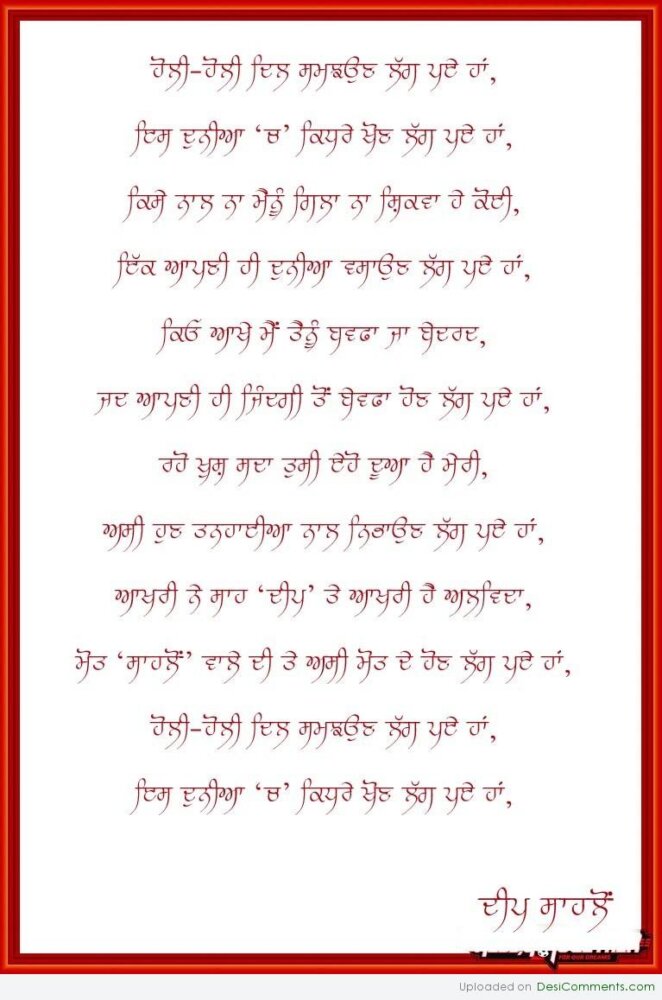 ਹੋਲੀ-ਹੋਲੀ ਦਿਲ ਸਮਝਉਣ ਲੱਗ ਪਏ ਹਾਂ,
ਇਸ ਦੁਨੀਆ ‘ਚ’ ਕਿਧਰੇ ਖੋਣ ਲੱਗ ਪਏ ਹਾਂ,
ਕਿਸੇ ਨਾਲ ਨਾ ਮੈਨੂੰ ਗਿਲਾ ਨਾ ਸ਼ਿਕਵਾ ਹੇ ਕੋਈ,
ਇੱਕ ਆਪਣੀ ਹੀ ਦੁਨੀਆ ਵਸਾਉਣ ਲੱਗ ਪਏ ਹਾਂ,
ਕਿਓਂ ਆਖੇ ਮੈਂ ਤੈਨੂੰ ਬਵਫਾ ਜਾ ਬੇਦਰਦ,
ਜਦ ਆਪਣੀ ਹੀ ਜਿੰਦਗੀ ਤੋਂ ਬੇਵਫਾ ਹੋਣ ਲੱਗ ਪਏ ਹਾਂ,
ਰਹੋ ਖੁਸ਼ ਸਦਾ ਤੁਸੀ ਏਹੋ ਦੂਆ ਹੈ ਮੇਰੀ,
ਅਸੀ ਹੁਣ ਤਨਹਾਈਆ ਨਾਲ ਨਿਭਾਉਣ ਲੱਗ ਪਏ ਹਾਂ,
ਆਖਰੀ ਨੇ ਸਾਹ ‘ਦੀਪ’ ਤੇ ਆਖਰੀ ਹੈ ਅਲਵਿਦਾ,
ਮੋਤ ‘ਸਾਹਲੋਂ’ ਵਾਲੇ ਦੀ ਤੇ ਅਸੀ ਮੋਤ ਦੇ ਹੋਣ ਲੱਗ ਪਏ ਹਾਂ,
ਹੋਲੀ-ਹੋਲੀ ਦਿਲ ਸਮਝਉਣ ਲੱਗ ਪਏ ਹਾਂ,
ਇਸ ਦੁਨੀਆ ‘ਚ’ ਕਿਧਰੇ ਖੋਣ ਲੱਗ ਪਏ ਹਾਂ,
ਦੀਪ ਸਾਹਲੋਂ
FOR OUR DREAMS
Uploaded on DesiComments.com